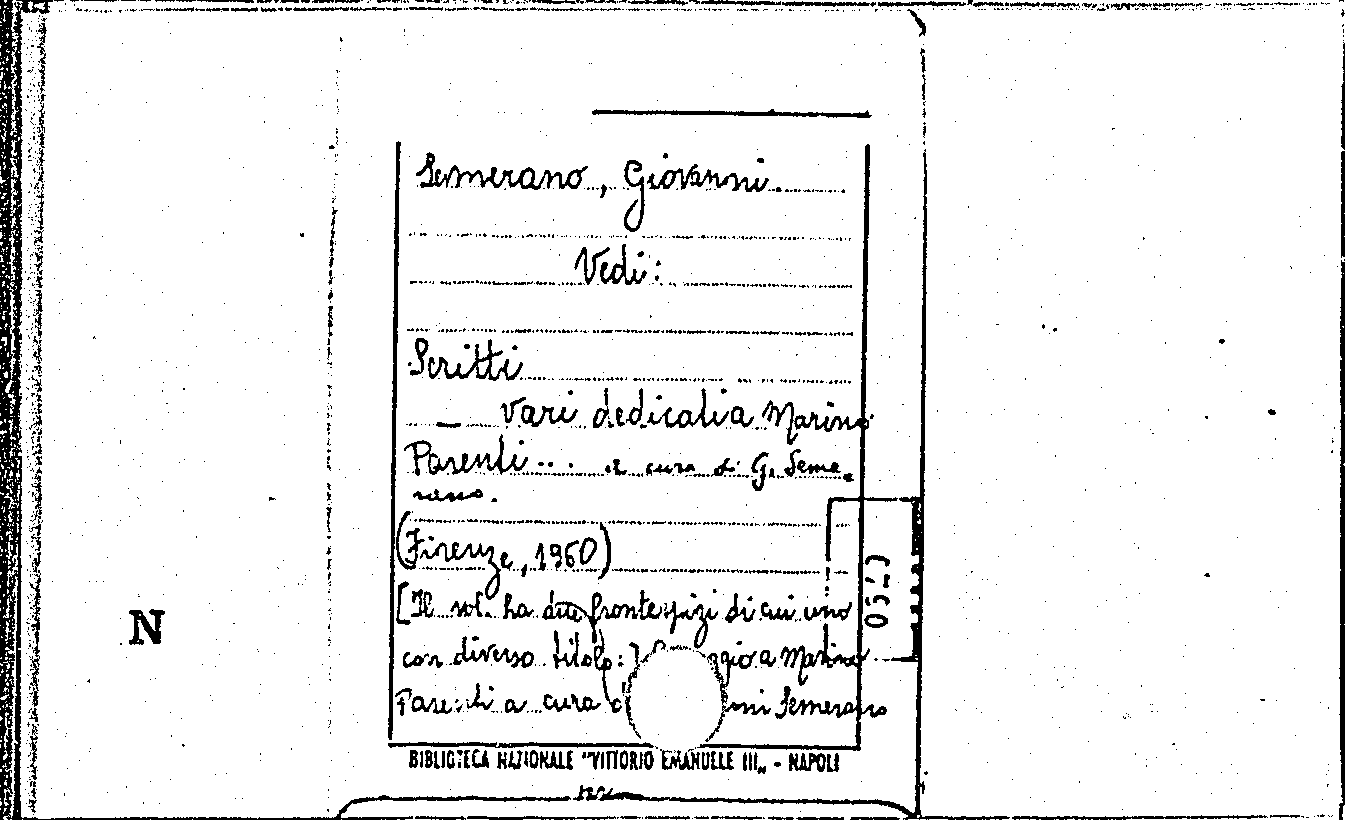 Semerano, Giovanni.
Vedi:
Scritti
— vari dedicati a Marino
Parenti... a cura di G. Seme-
rano.
(Firenze, 1960)
[Il vol. ha due frontespizi di cui uno
con diverso titolo: ggio a Marino
Parenti a cura nni Semerano
BIBLIOTECA NAZIONALE "VITTORIO EMANUELE III„ - NAPOLI
N